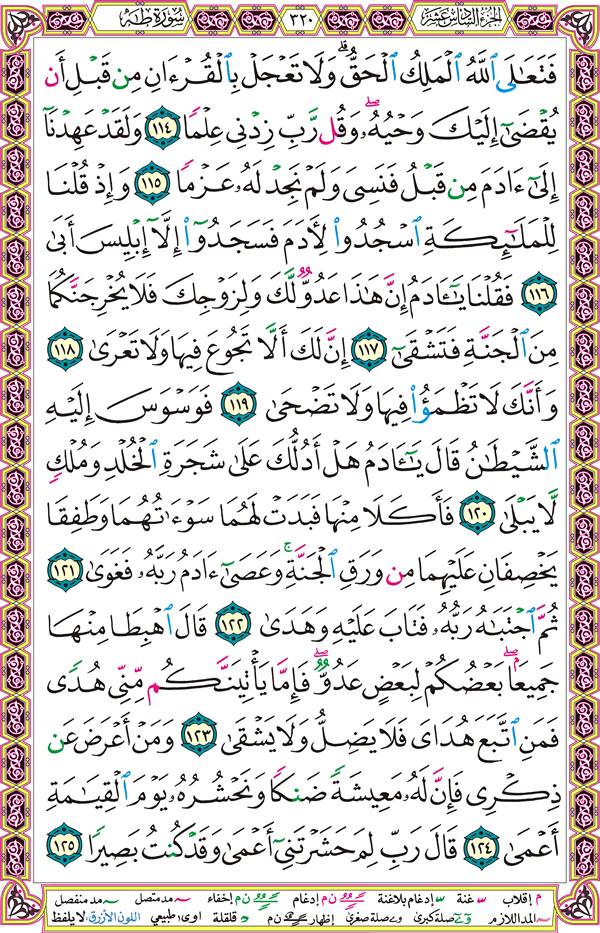 الجزء السادس عشر ٣٢٠ سورة طه
فَتَعَٰلَى ٱللَّهُ ٱلْمَلِكُ ٱلْحَقُّ ۗ وَلَا تَعْجَلْ بِٱلْقُرْءَانِ مِن قَبْلِ أَن
يُقْضَىٰٓ إِلَيْكَ وَحْيُهُۥ ۖ وَقُل رَّبِّ زِدْنِى عِلْمًا ١١٤ وَلَقَدْ عَهِدْنَآ
إِلَىٰٓ ءَادَمَ مِن قَبْلُ فَنَسِىَ وَلَمْ نَجِدْ لَهُۥ عَزْمًا ١١٥ وَإِذْ قُلْنَا
لِلْمَلَٰٓئِكَةِ ٱسْجُدُوا۟ لِءَادَمَ فَسَجَدُوٓا۟ إِلَّآ إِبْلِيسَ أَبَىٰ
١١٦ فَقُلْنَا يَٰٓـَٔادَمُ إِنَّ هَٰذَا عَدُوٌّ لَّكَ وَلِزَوْجِكَ فَلَا يُخْرِجَنَّكُمَا
مِنَ ٱلْجَنَّةِ فَتَشْقَىٰٓ ١١٧ إِنَّ لَكَ أَلَّا تَجُوعَ فِيهَا وَلَا تَعْرَىٰ ١١٨
وَأَنَّكَ لَا تَظْمَؤُا۟ فِيهَا وَلَا تَضْحَىٰ ١١٩ فَوَسْوَسَ إِلَيْهِ
ٱلشَّيْطَٰنُ قَالَ يَٰٓـَٔادَمُ هَلْ أَدُلُّكَ عَلَىٰ شَجَرَةِ ٱلْخُلْدِ وَمُلْكٍ
لَّا يَبْلَىٰ ١٢٠ فَأَكَلَا مِنْهَا فَبَدَتْ لَهُمَا سَوْءَٰتُهُمَا وَطَفِقَا
يَخْصِفَانِ عَلَيْهِمَا مِن وَرَقِ ٱلْجَنَّةِ ۚ وَعَصَىٰٓ ءَادَمُ رَبَّهُۥ فَغَوَىٰ ١٢١
ثُمَّ ٱجْتَبَٰهُ رَبُّهُۥ فَتَابَ عَلَيْهِ وَهَدَىٰ ١٢٢ قَالَ ٱهْبِطَا مِنْهَا
جَمِيعًۢا ۖ بَعْضُكُمْ لِبَعْضٍ عَدُوٌّ ۖ فَإِمَّا يَأْتِيَنَّكُم مِّنِّى هُدًى
فَمَنِ ٱتَّبَعَ هُدَاىَ فَلَا يَضِلُّ وَلَا يَشْقَىٰ ١٢٣ وَمَنْ أَعْرَضَ عَن
ذِكْرِى فَإِنَّ لَهُۥ مَعِيشَةً ضَنكًا وَنَحْشُرُهُۥ يَوْمَ ٱلْقِيَٰمَةِ
أَعْمَىٰ ١٢٤ قَالَ رَبِّ لِمَ حَشَرْتَنِىٓ أَعْمَىٰ وَقَدْ كُنتُ بَصِيرًا ١٢٥
م إقلاب غنة إدغام بلاغنة ن م إدغام ن م إخفاء مد متصل مد منفصل
المد اللازم صلة كبرى صلة صغرى إظهار ن م قلقلة اوى طبيعي اللون الأزرق: لا يلفظ